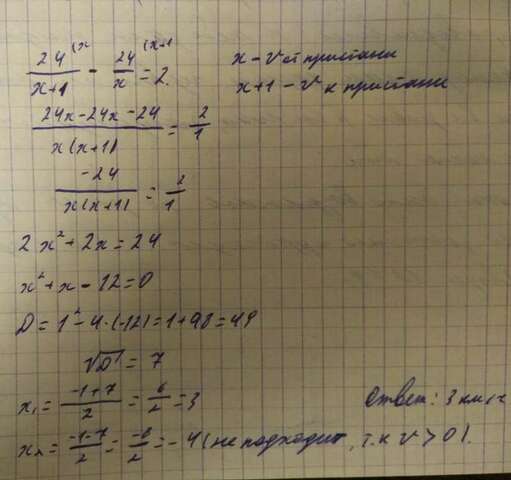 24 (x / x+1 - 24 (x+1 / x = 2
x - v от пристани
x+1 - v к пристани
24x-24x-24 / x(x+1) = 2/1
-24 / x(x+1) = 2/1
2x²+2x=24
x²+x-12=0
D=1²-4·(-12)=1+48=49
√D=7
x₁ = -1+7 / 2 = 6/2 = 3
Ответ: 3 км/ч
x₂ = -1-7 / 2 = -8/2 = -4 (не подходит, т.к v>0).